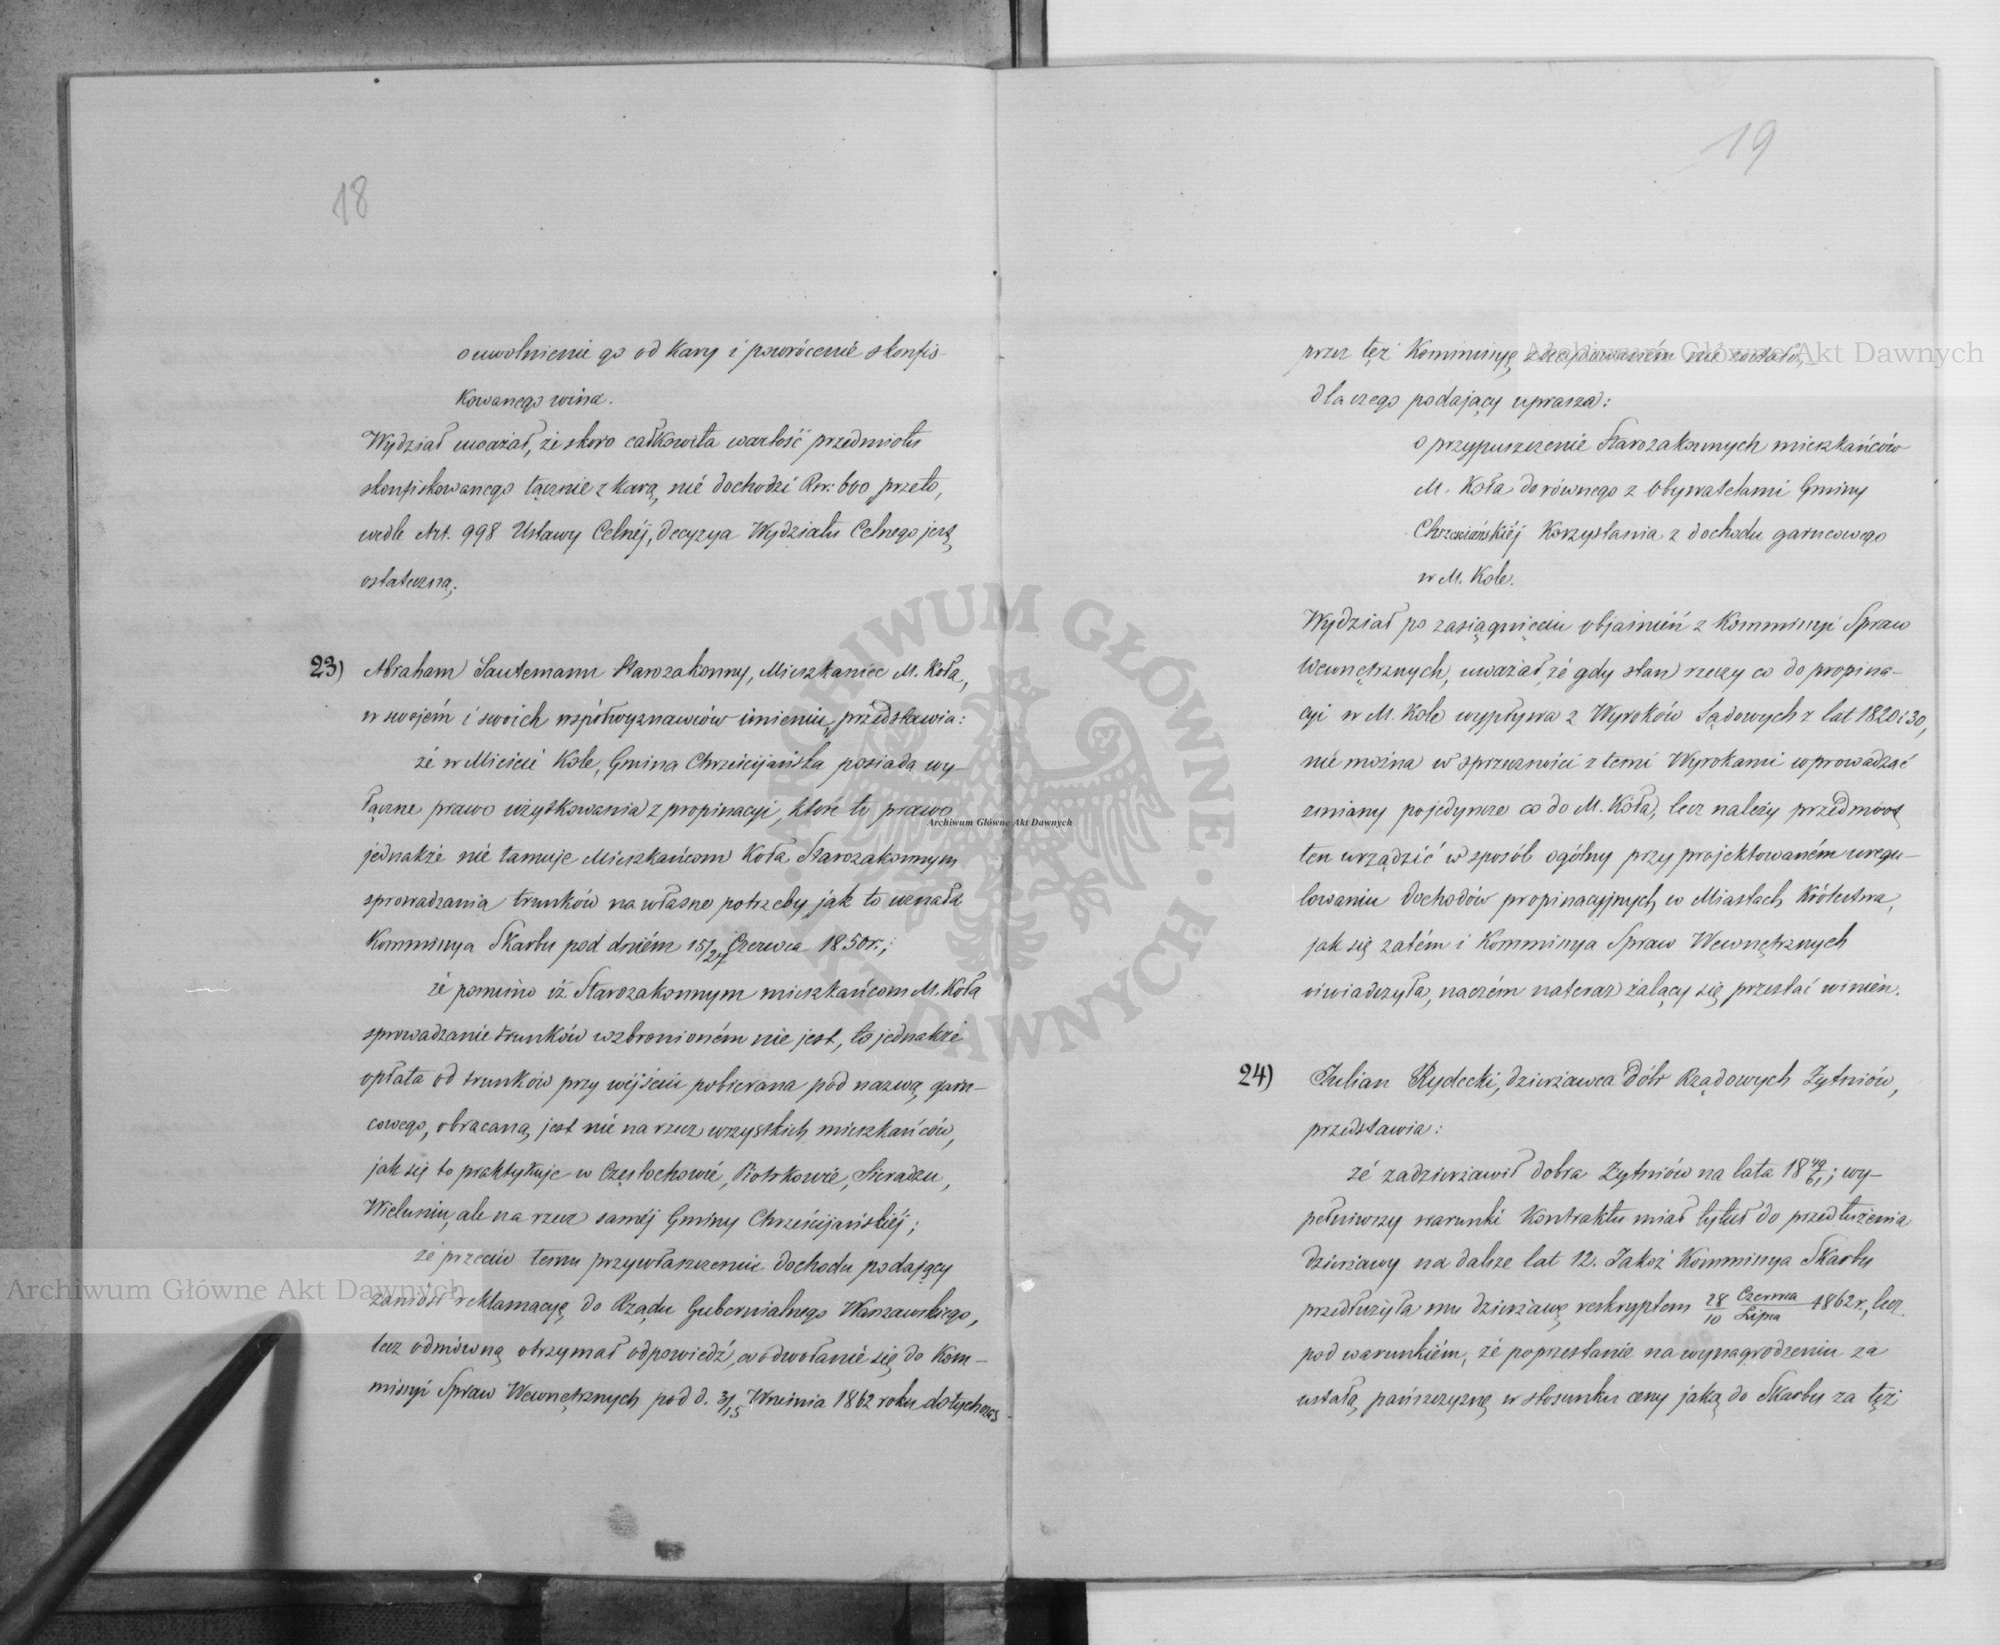 18
o uwolnienie go od Kary i powrócenie skonfis-
kowanego wina.
Wydział uważał, że skoro całkowita wartość przedmiotu
skonfiskowanego łącznie z karą, nie dochodzi Rsr: 600 przeto,
wedle Art. 998 Ustawy Celnéj, decyzya Wydziału Celnego jest
ostateczną.
23) Abraham Sautemann Starozakonny, Mieszkaniec M. Koła,
w swojém i swoich współwyznawców imieniu, przedstawia:
że w Mieście Kole, Gmina Chrześcijańska posiada wy-
łączne prawo użytkowania z propinacyi, które to prawo
jednakże nie tamuje Mieszkańcom Koła Starozakonnym
sprowadzania trunków na własne potrzeby, jak to uznała
Kommissya Skarbu pod dniém 15/27 Czerwca 1850 r.;
że pomimo iż Starozakonnym mieszkańcom M. Koła
sprowadzanie trunków wzbronioném nie jest, to jednakże
opłata od trunków przy wejściu pobierana pod nazwą garn-
cowego, obracaną jest nie na rzecz wszystkich mieszkańców,
jak się to praktykuje w Częstochowie, Piotrkowie, Sieradzu,
Wieluniu, ale na rzecz saméj Gminy Chrześcijańskiéj;
że przeciw temu przywłaszczeniu dochodu podający
zaniósł reklamacyę do Rządu Gubernialnego Warszawskiego,
lecz odmówną otrzymał odpowiedź, a odwołanie się do Kom-
missyi Spraw Wewnętrznych pod d. 3/15 Września 1862 roku dotychczas
19
przez tęż Kommissyę zdecydowaném nie zostało,
dlaczego podający uprasza:
o przypuszczenie Starozakonnych mieszkańców
M. Koła do równego z Obywatelami Gminy
Chrześciańskiéj Korzystania z dochodu garncowego
w M. Kole.
Wydział po zasiągnięciu objaśnień z Kommissyi Spraw
Wewnętrznych, uważał, że gdy stan rzeczy co do propina-
cyi w M. Kole wypływa z Wyroków Sądowych z lat 1820 i 30,
nie można w sprzeczności z temi Wyrokami wprowadzać
zmiany pojedyncze co do M. Koła, lecz należy przedmiot
ten urządzić w sposób ogólny przy projektowaném uregu-
lowaniu dochodów propinacyjnych w Miastach Królestwa,
jak się zatém i Kommissya Spraw Wewnętrznych
oświadczyła, na czém na teraz żalący się przestać winién.
24) Julian Rydecki, dzierżawca Dóbr Rządowych Żytniów,
przedstawia:
że zadzierżawił dobra Żytniów na lata 18 49/61; wy-
pełniwszy warunki Kontraktu miał tytuł do przedłużenia
dzierżawy na dalsze lat 12. Jakoż Kommissya Skarbu
przedłużyła mu dzierżawę reskryptem 28/10 Czerwca/Lipca 1862 r., lecz
pod warunkiém, że poprzestanie na wynagrodzeniu za
ustałą pańszczyznę w stosunku ceny jaką do Skarbu za tęż
ARCHIWUM GŁÓWNE AKT DAWNYCH
Archiwum Główne Akt Dawnych
Archiwum Główne Akt Dawnych
Archiwum Główne Akt Dawnych